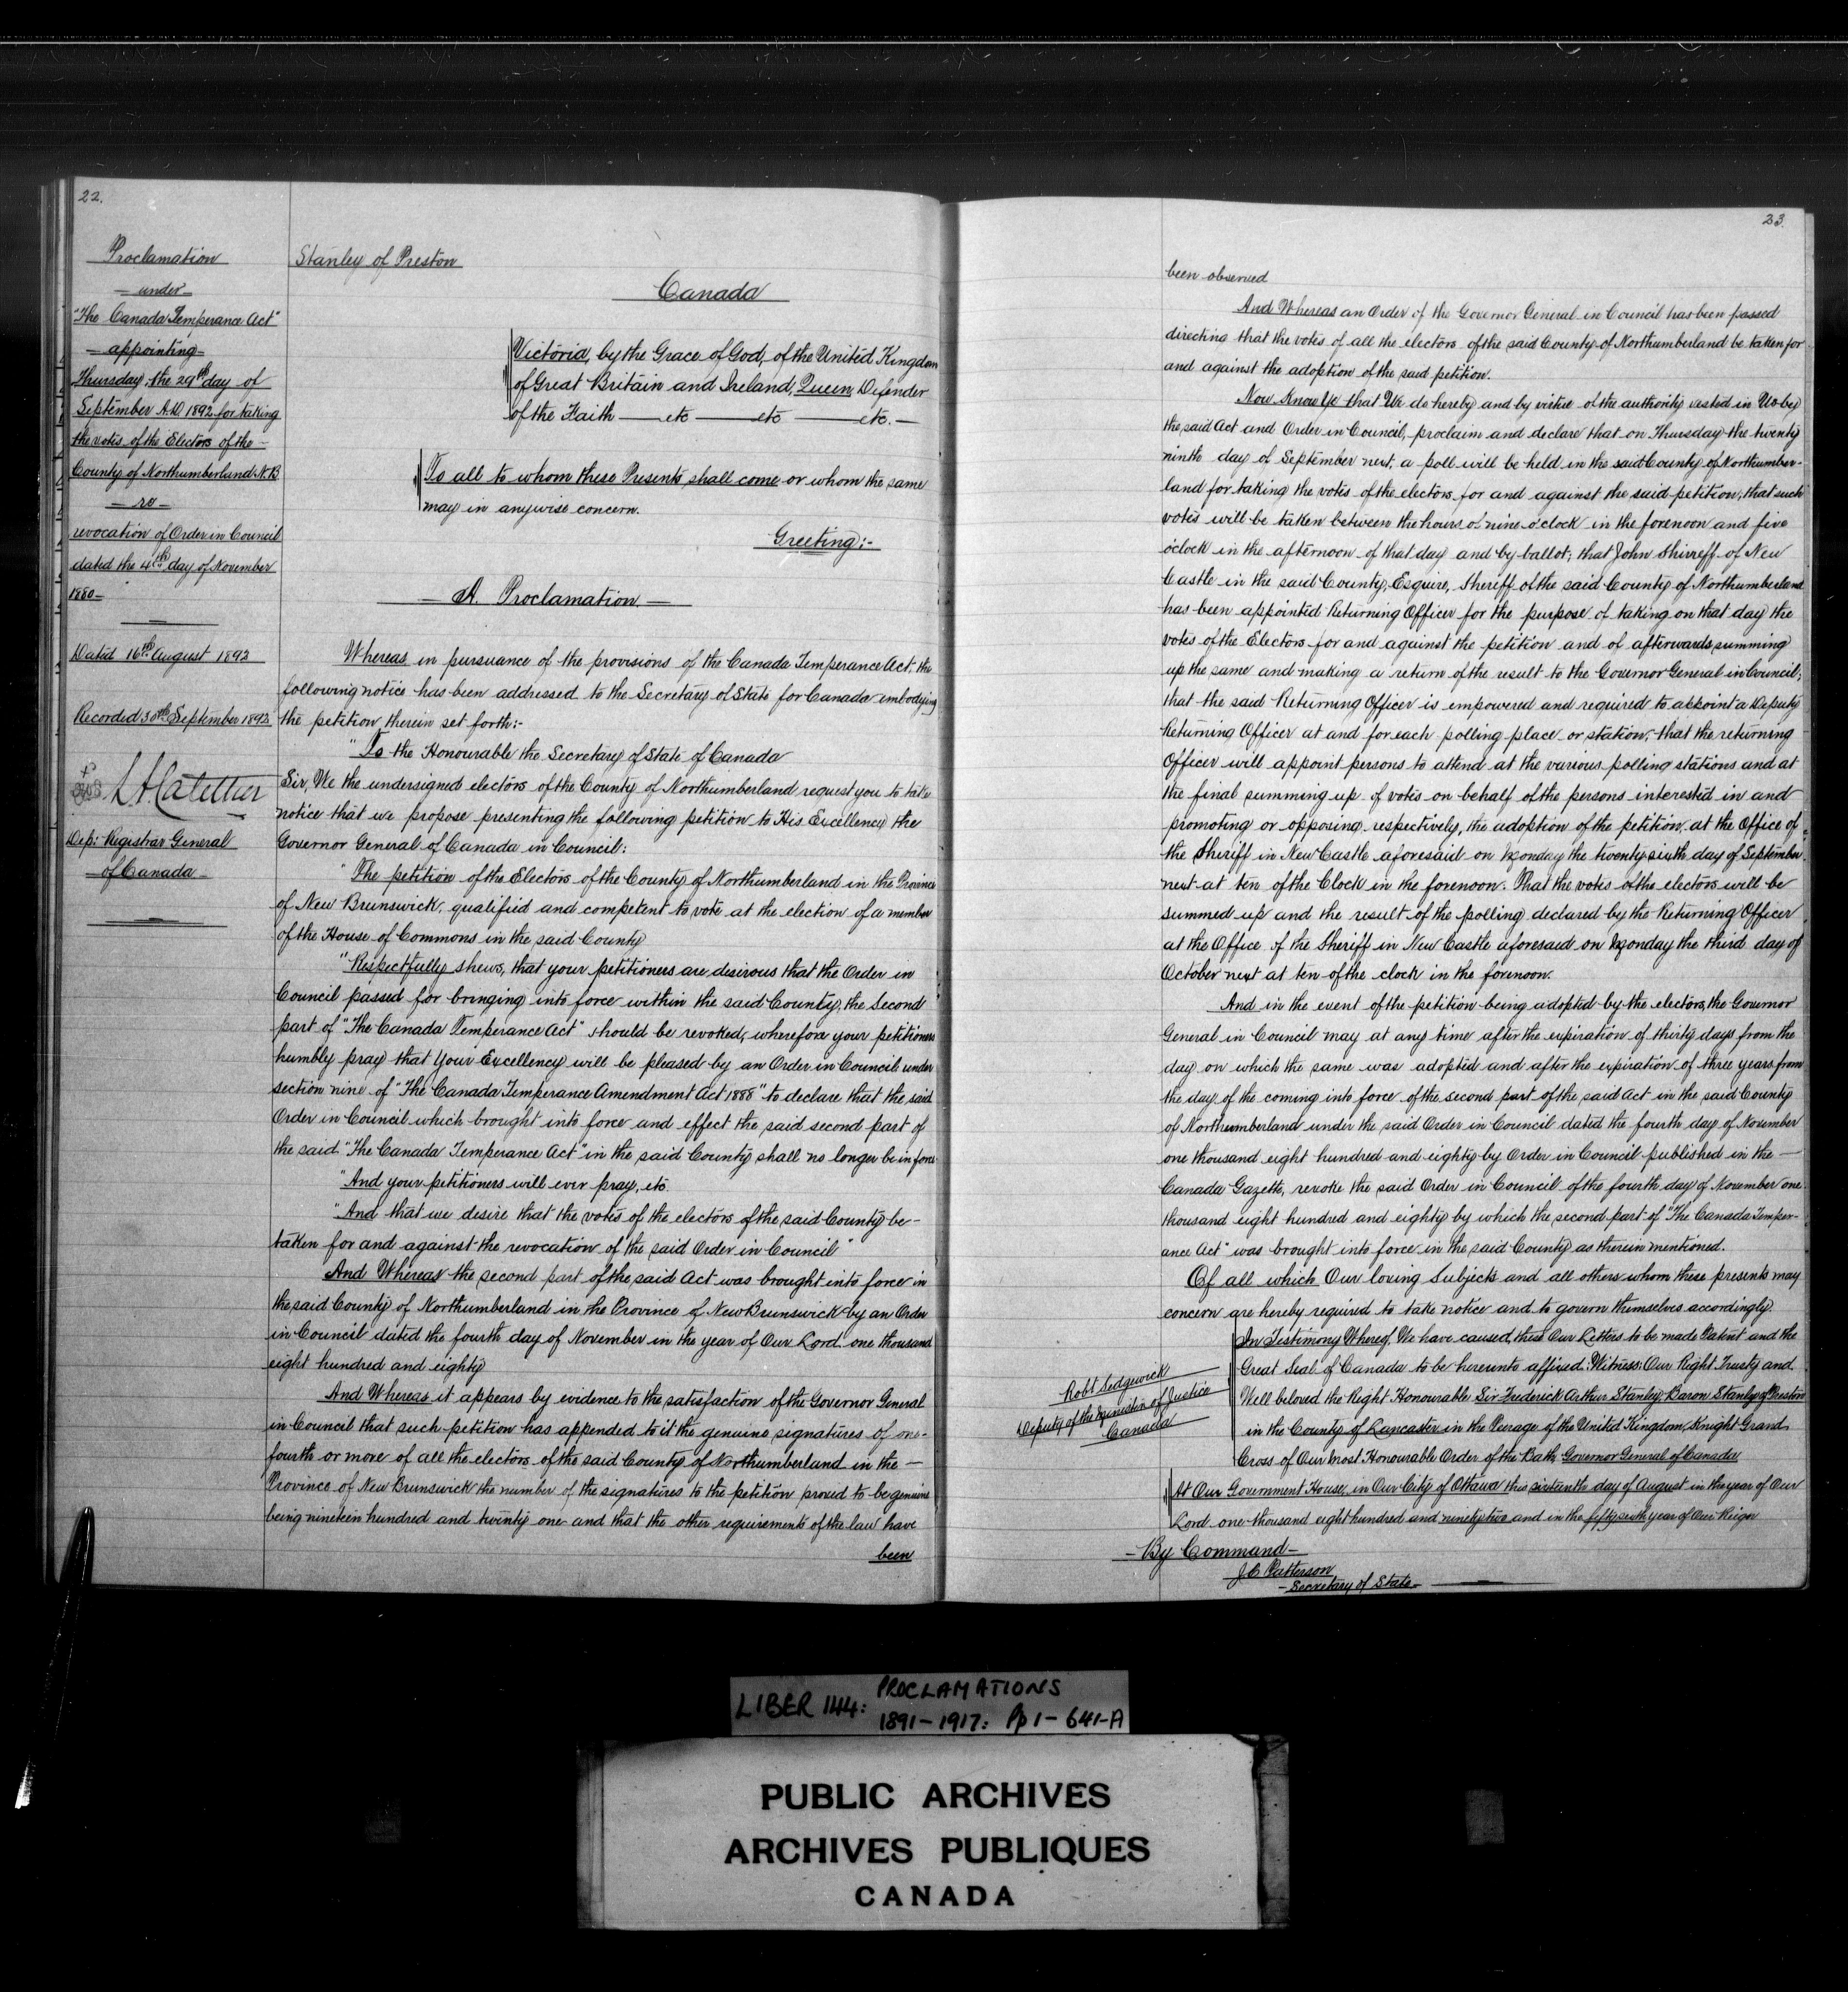 22.
Proclamation
- under -
"The Canada Temperance Act"
- appointing -
Thursday, the 29th day of
September A.D 1892 for taking
the votes of the Electors of the -
County of Northumberland N.B.
- re -
revocation of Order in Council
dated the 4th day of November
1880 -
Dated 16th August 1892
Recorded 30th September 1892
Dep: Registrar General
of Canada -
Stanley of Preston
Canada
Victoria, by the Grace of God, of the United Kingdom
of Great Britain and Ireland, Queen, Defender
of the Faith — etc — etc — etc. —
To all to whom these Presents shall come or whom the same
may in anywise concern.
Greeting:-
— A. Proclamation. —
Whereas in pursuance of the provisions of the Canada Temperance Act, the
following notice has been addressed to the Secretary of State for Canada embodying
the petition therein set forth:-
"To the Honourable the Secretary of State of Canada
Sir, We the undersigned electors of the County of Northumberland request you to take
notice that we propose presenting the following petition to His Excellency the
Governor General of Canada in Council:
"The petition of the Electors of the County of Northumberland in the Province
of New Brunswick, qualified and competent to vote at the election of a member
of the House of Commons in the said County
"Respectfully shews, that your petitioners are desirous that the Order in
Council passed for bringing into force within the said County, the Second
part of "The Canada Temperance Act" should be revoked, wherefore your petitioners
humbly pray that Your Excellency will be pleased by an Order in Council under
section nine of "The Canada Temperance Amendment Act 1888" to declare that the said
Order in Council which brought into force and effect the said second part of
the said "The Canada Temperance Act" in the said County shall no longer be in force
"And your petitioners will ever pray, etc
"And that we desire that the votes of the electors of the said County be -
taken for and against the revocation of the said Order in Council"
And Whereas the second part of the said Act was brought into force in
the said County of Northumberland in the Province of New Brunswick by an Order
in Council dated the fourth day of November in the year of Our Lord one thousand
eight hundred and eighty
And Whereas it appears by evidence to the satisfaction of the Governor General
in Council that such petition has appended to it the genuine signatures of one-
fourth or more of all the electors of the said County of Northumberland in the —
Province of New Brunswick the number of the signatures to the petition proved to be genuine
being nineteen hundred and twenty one and that the other requirements of the law have
been
23.
been observed
And Whereas an Order of the Governor General in Council has been passed
directing that the votes of all the electors of the said County of Northumberland be taken for
and against the adoption of the said petition.
Now Know Ye that We do hereby and by virtue of the authority vested in Us by
the said Act and Order in Council, proclaim and declare that on Thursday the twenty
ninth day of September next, a poll will be held in the said County of Northumber-
land for taking the votes of the electors for and against the said petition; that such
votes will be taken between the hours of nine o'clock in the forenoon and five
o'clock in the afternoon of that day and by ballot; that John Shirreff of New
Castle in the said County, Esquire, Sheriff of the said County of Northumberland
has been appointed Returning Officer for the purpose of taking on that day the
votes of the Electors for and against the petition and of afterwards summing
up the same and making a return of the result to the Governor General in Council;
that the said Returning Officer is empowered and required to appoint a Deputy
Returning Officer at and for each polling place or station; that the returning
Officer will appoint persons to attend at the various polling stations and at
the final summing up of votes on behalf of the persons interested in and
promoting or opposing respectively, the adoption of the petition, at the Office of
the Sheriff in New Castle aforesaid on Monday the twenty sixth day of September
next at ten of the Clock in the forenoon. That the votes of the electors will be
summed up and the result of the polling declared by the Returning Officer
at the Office of the Sheriff in New Castle aforesaid on Monday the third day of
October next at ten of the clock in the forenoon.
And in the event of the petition being adopted by the electors, the Governor
General in Council may at any time after the expiration of thirty days from the
day on which the same was adopted and after the expiration of three years from
the day of the coming into force of the second part of the said Act in the said County
of Northumberland under the said Order in Council dated the fourth day of November
one thousand eight hundred and eighty by Order in Council published in the —
Canada Gazette, revoke the said Order in Council of the fourth day of November one
thousand eight hundred and eighty by which the second part of "The Canada Temper-
ance Act" was brought into force in the said County as therein mentioned.
Of all which Our loving Subjects and all others whom these presents may
concern are hereby required to take notice and to govern themselves accordingly
In Testimony Whereof, We have caused these Our Letters to be made Patent and the
Great Seal of Canada to be hereunto affixed: Witness; Our Right Trusty and
Well beloved the Right Honourable Sir Frederick Arthur Stanley Baron Stanley of Preston
in the County of Lancaster in the Peerage of the United Kingdom, Knight Grand
Cross of Our Most Honourable Order of the Bath, Governor General of Canada
Robt Sedgewick
Deputy of the Minister of Justice
Canada
At Our Government House, in Our City of Ottawa this sixteenth day of August in the year of Our
Lord one thousand eight hundred and ninety two and in the fifty sixth year of Our Reign
- By Command -
J C Patterson
- Secretary of State -
LIBER 144: PROCLAMATIONS
1891-1917: Pp 1-641-A
PUBLIC ARCHIVES
ARCHIVES PUBLIQUES
CANADA